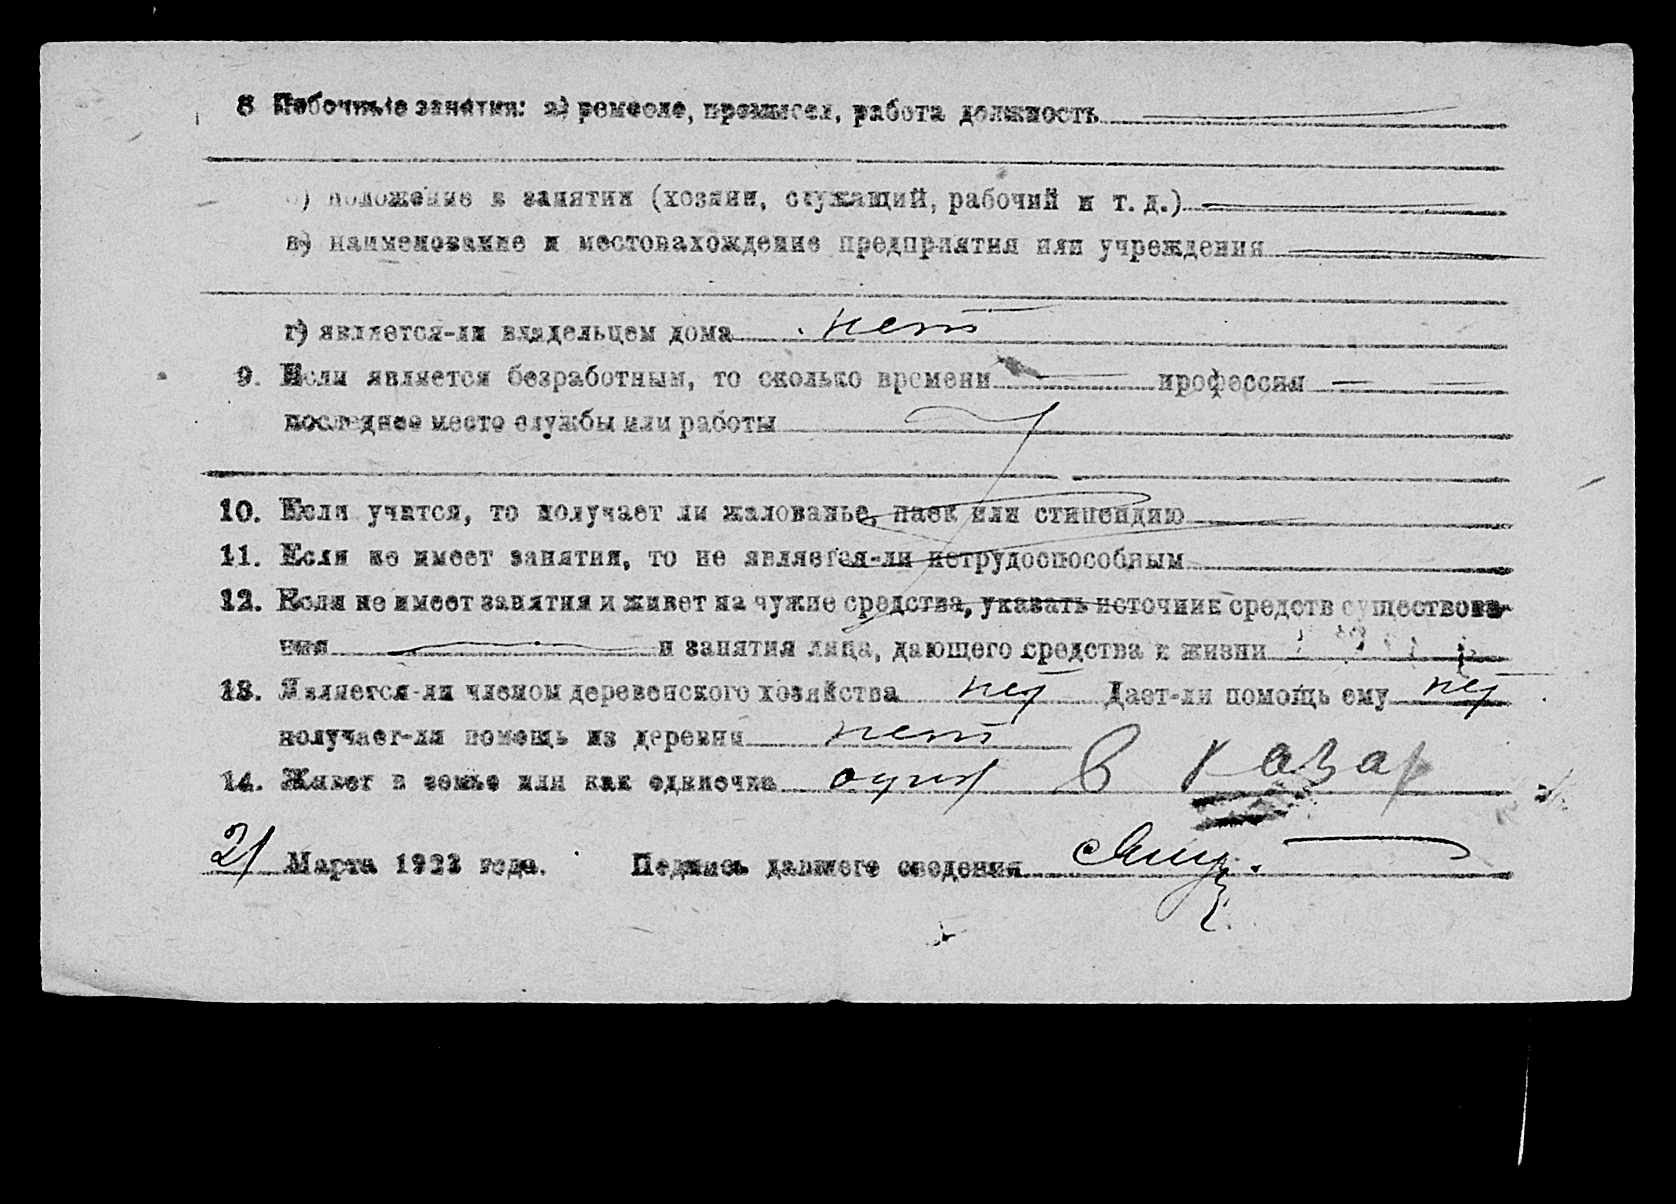 8 Побочные занятия: а) ремесло, промысел, работа должность
б) положение в занятии (хозяин, служащий, рабочий и т. д.)
в) наименование и местонахождение предприятия или учреждения
г) является-ли владельцем дома нет
9. Если является безработным, то сколько времени — профессия — —
последнее место службы или работы
10. Если учится, то получает ли жалованье, паек или стипендию
11. Если не имеет занятия, то не является-ли нетрудоспособным
12. Если не имеет занятия и живет на чужие средства, указать источник средств существова-
ния и занятия лица, дающего средства к жизни
13. Является-ли членом деревенского хозяйства нет Дает-ли помощь ему нет
получает-ли помощь из деревни нет
14. Живет в семье или как одиночка один в казар
21 Марта 1923 года. Подпись давшего сведения